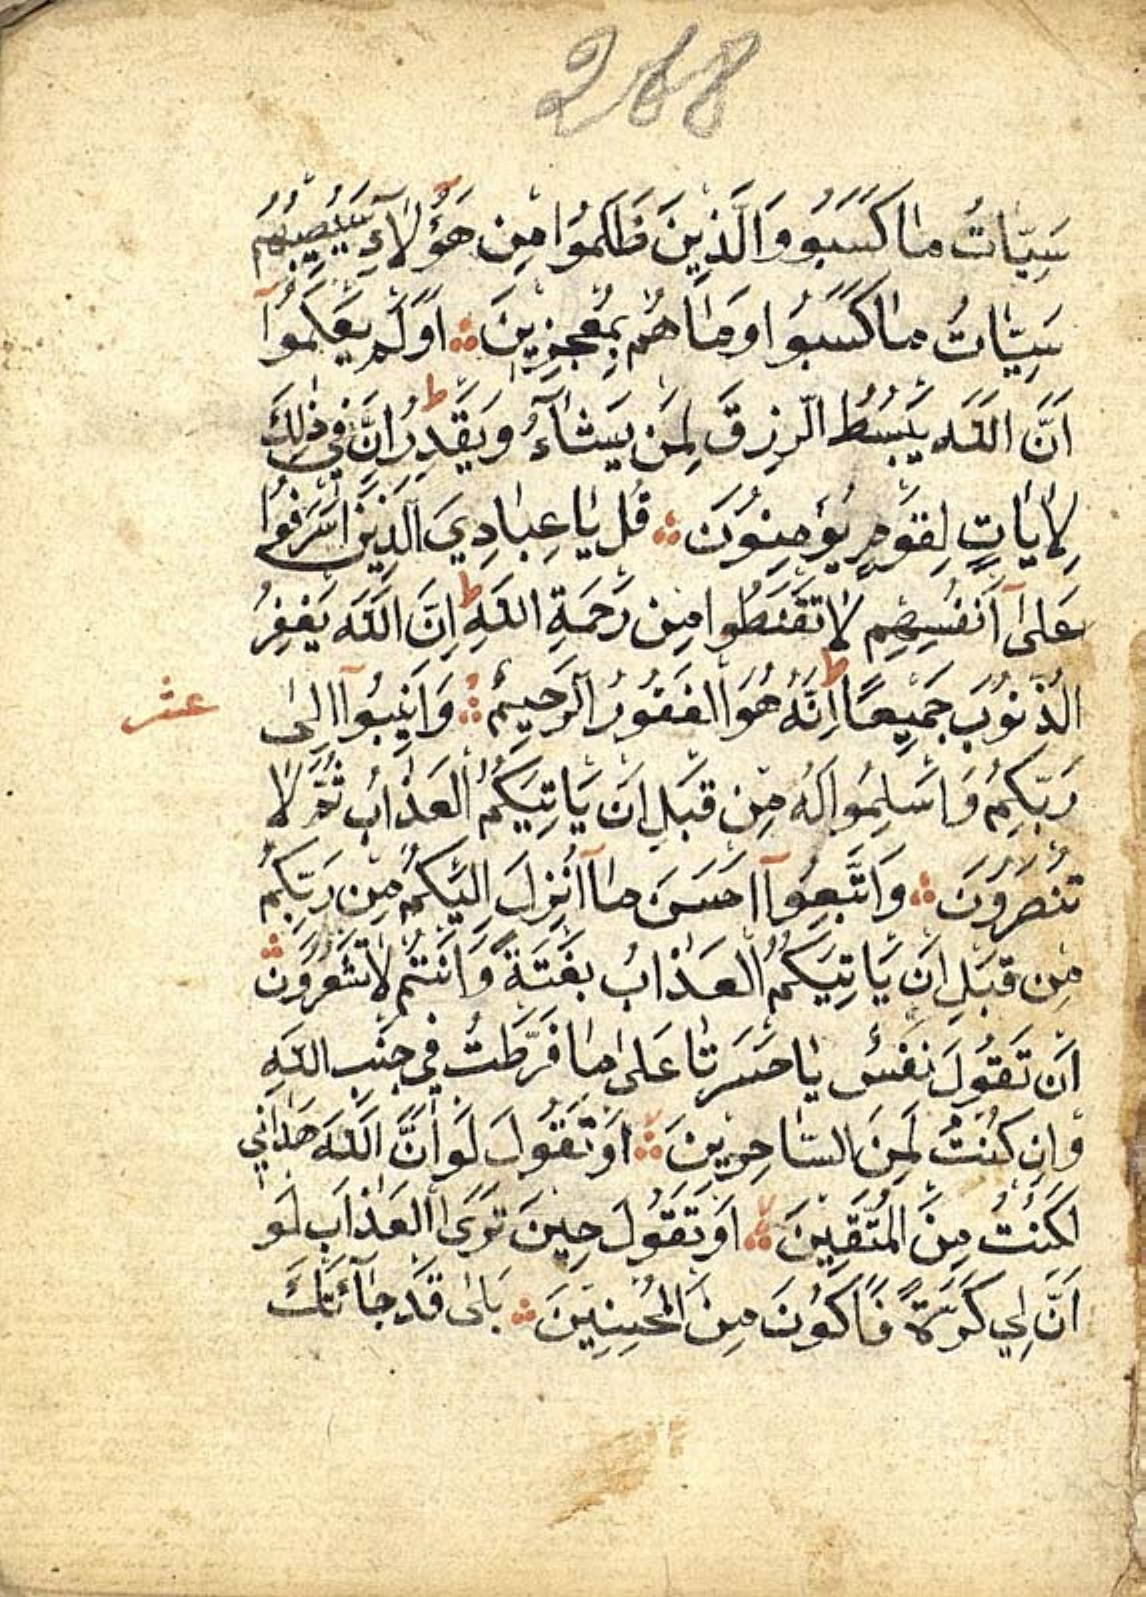 268
سَيِّئَاتُ مَا كَسَبُوا وَالَّذِينَ ظَلَمُوا مِنْ هَؤُلَآءِ سَيُصِيبُهُمْ
سَيِّئَاتُ مَا كَسَبُوا وَمَا هُمْ بِمُعْجِزِينَ ۞ اَوَلَمْ يَعْلَمُوآ
اَنَّ اللّٰهَ يَبْسُطُ الرِّزْقَ لِمَنْ يَشَآءُ وَيَقْدِرُ ط اِنَّ فِي ذٰلِكَ
لَاٰيَاتٍ لِقَوْمٍ يُؤْمِنُونَ ۞ قُلْ يَاعِبَادِيَ الَّذِينَ اَسْرَفُوا
عَلٰىٓ اَنْفُسِهِمْ لَا تَقْنَطُوا مِنْ رَحْمَةِ اللّٰهِ ط اِنَّ اللّٰهَ يَغْفِرُ
الذُّنُوبَ جَمِيعًا ط اِنَّهُ هُوَ الْغَفُورُ الرَّحِيمُ ۞ وَاَنِيبُوآ اِلٰى
عشر
رَبِّكُمْ وَاَسْلِمُوا لَهُ مِنْ قَبْلِ اَنْ يَاْتِيَكُمُ الْعَذَابُ ثُمَّ لَا
تُنْصَرُونَ ۞ وَاتَّبِعُوآ اَحْسَنَ مَآ اُنْزِلَ اِلَيْكُمْ مِنْ رَبِّكُمْ
مِنْ قَبْلِ اَنْ يَاْتِيَكُمُ الْعَذَابُ بَغْتَةً وَاَنْتُمْ لَا تَشْعُرُونَ ۞
اَنْ تَقُولَ نَفْسٌ يَاحَسْرَتَا عَلٰى مَا فَرَّطْتُ فِي جَنْبِ اللّٰهِ
وَاِنْ كُنْتُ لَمِنَ السَّاخِرِينَ ۞ اَوْ تَقُولَ لَوْ اَنَّ اللّٰهَ هَدَانِي
لَكُنْتُ مِنَ الْمُتَّقِينَ ۞ اَوْ تَقُولَ حِينَ تَرَى الْعَذَابَ لَوْ
اَنَّ لِي كَرَّةً فَاَكُونَ مِنَ الْمُحْسِنِينَ ۞ بَلٰى قَدْ جَآءَتْكَ